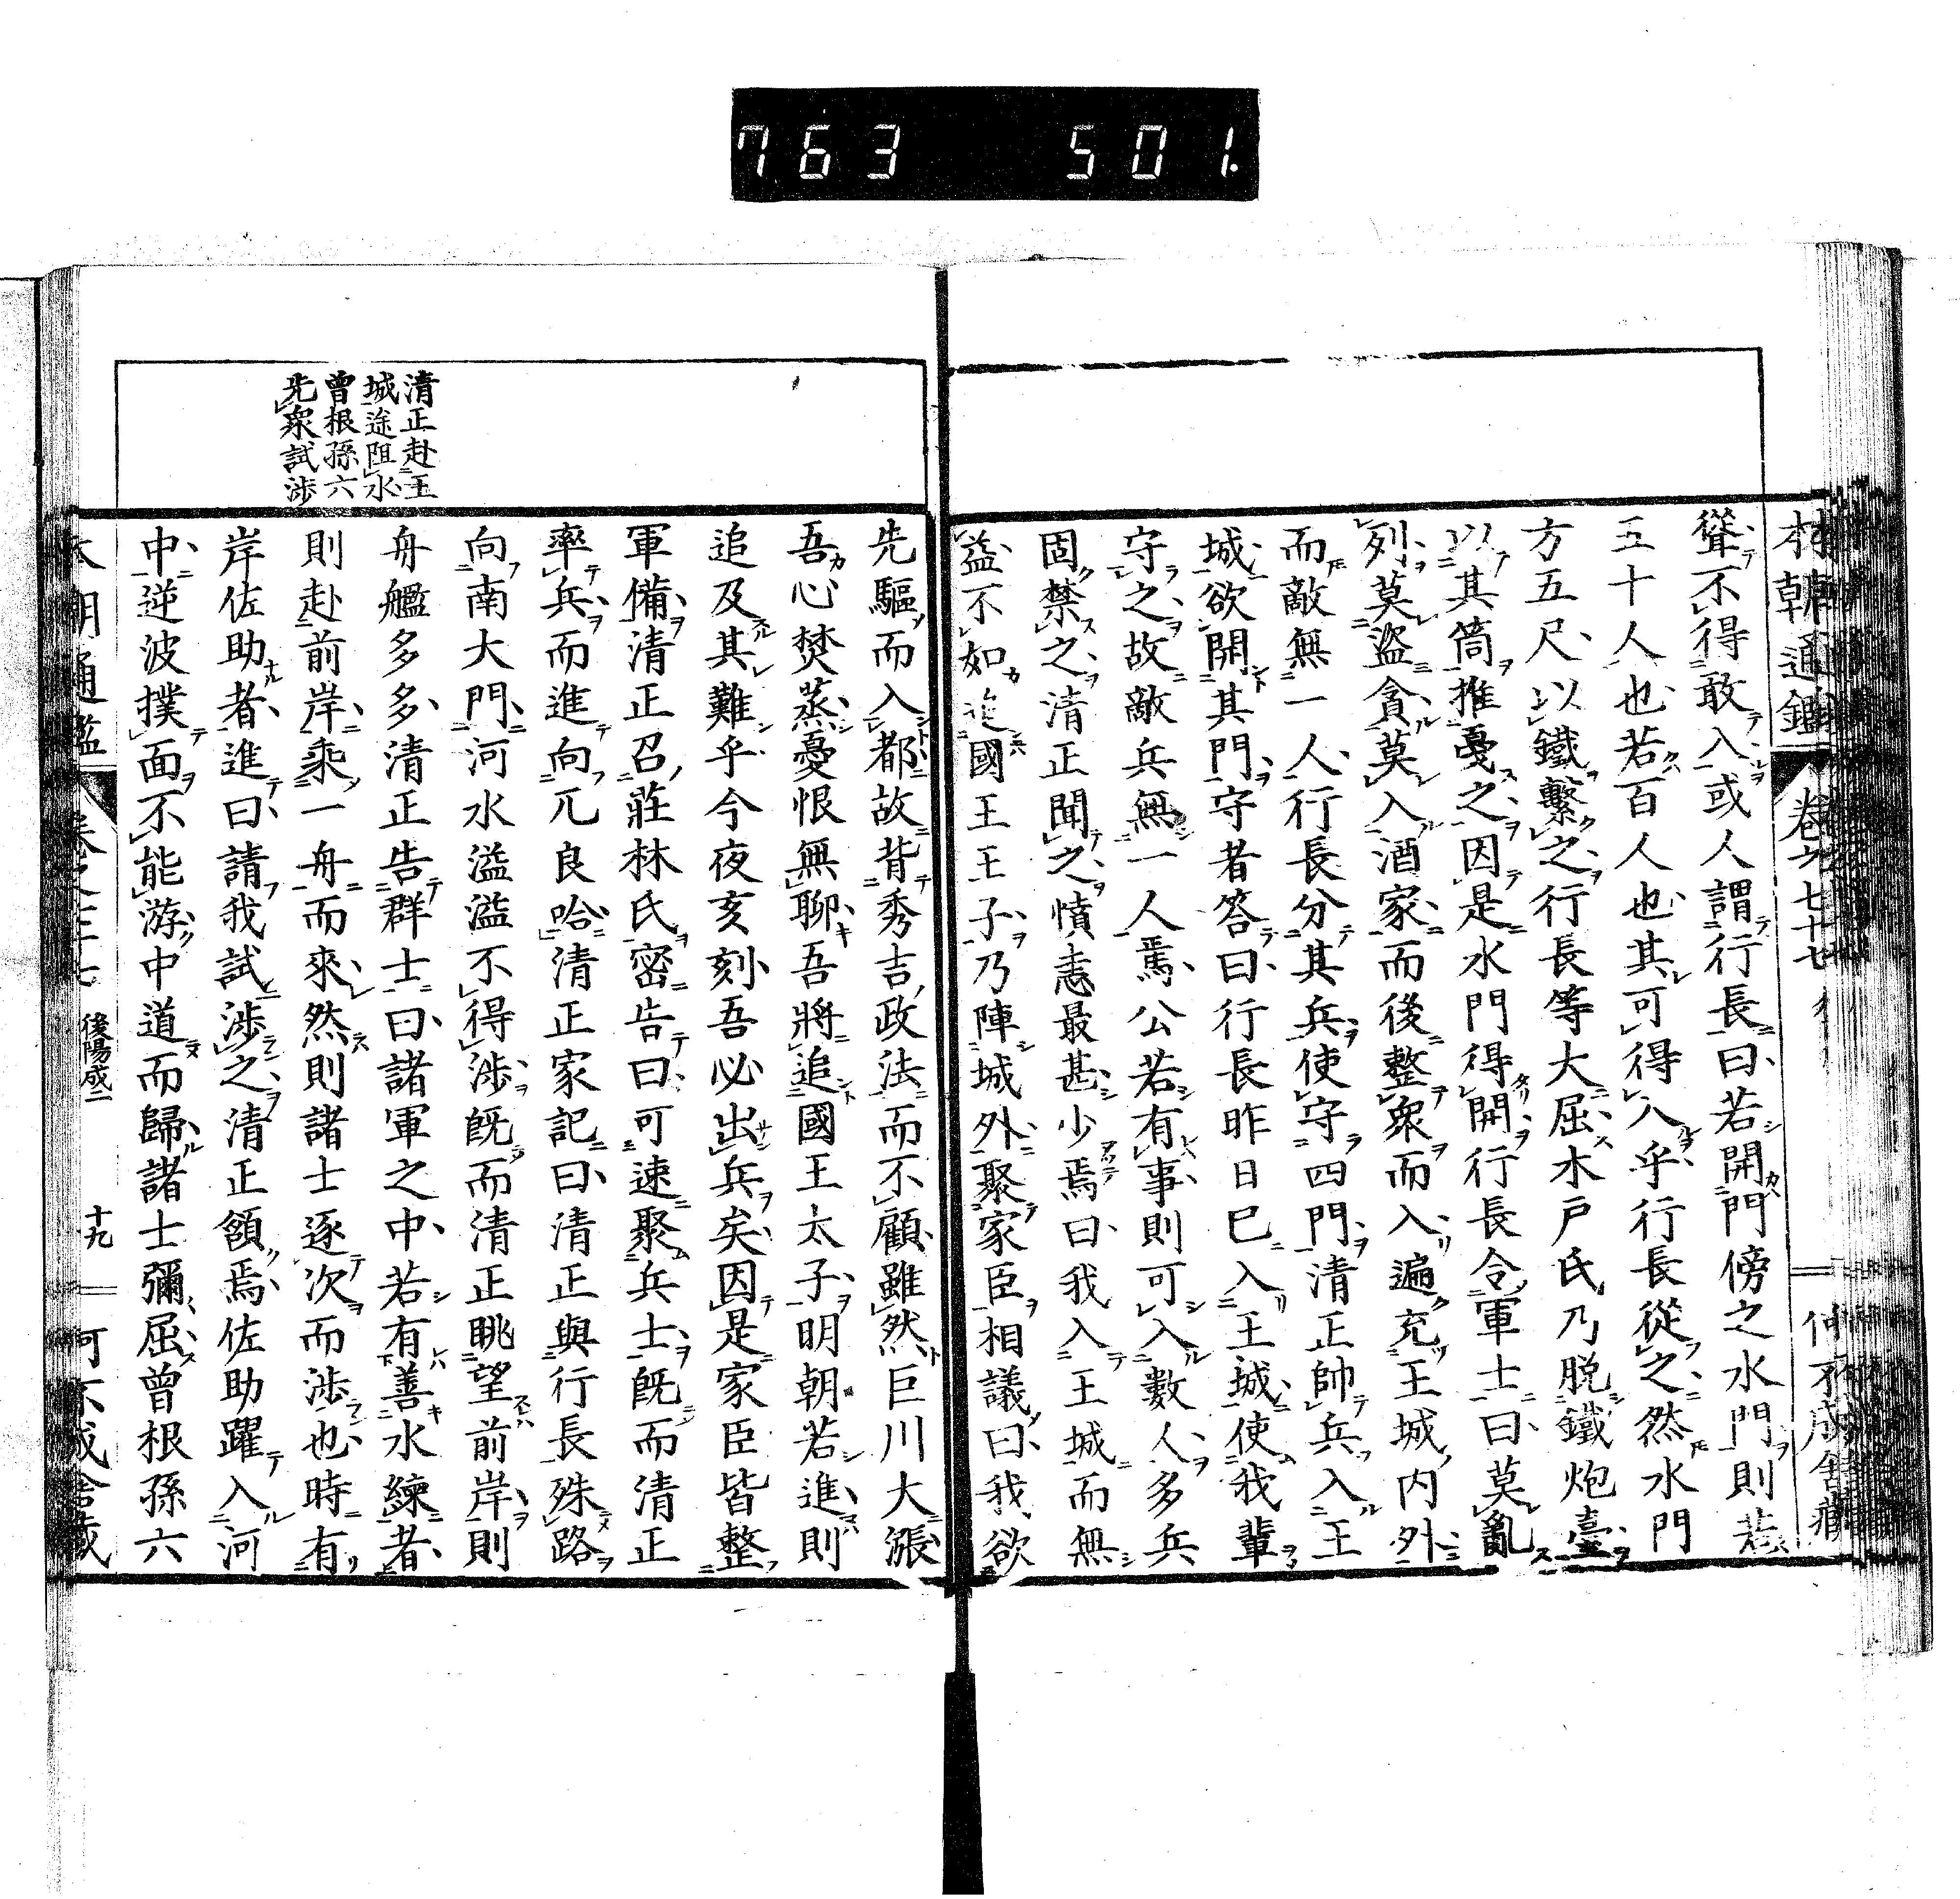 763 501.
聳不得敢入或人謂行長曰若開門傍之水門則若
五十人也若百人也其可得入乎行長從之然水門
方五尺以鐵繋之行長等大屈木戸氏乃脱鐵炮臺
以其筒推戞之因是水門得開行長令軍士曰莫亂
列莫盜貪莫入酒家而後整衆而入遍充王城内外
而敵無一人行長分其兵使守四門清正帥兵入王
城欲開其門守者答曰行長昨日已入王城使我輩
守之故敵兵無一人焉公若有事則可入數人多兵
固禁之清正聞之憤恚最甚少焉曰我入王城而無
益不如追國王王子乃陣城外聚家臣相議曰我欲
清正赴王
城途阻水
曾根孫六
先衆試渉
先驅而入都故背秀吉政法而不顧雖然巨川大漲
吾心焚蒸憂恨無聊吾將追國王太子明朝若進則
追及其難乎今夜亥刻吾必出兵矣因是家臣皆整
軍備清正召莊林氏密告曰可速聚兵士既而清正
率兵而進向兀良哈清正家記曰清正與行長殊路
向南大門河水溢溢不得渉既而清正眺望前岸則
舟艦多多清正告群士曰諸軍之中若有善水練者
則赴前岸乘一舟而來然則諸士逐次而渉也時有
岸佐助者進曰請我試渉之清正頷焉佐助躍入河
中逆波撲面不能游中道而歸諸士彌屈曾根孫六
本朝通鑑 卷之七十七 後陽成二 十九